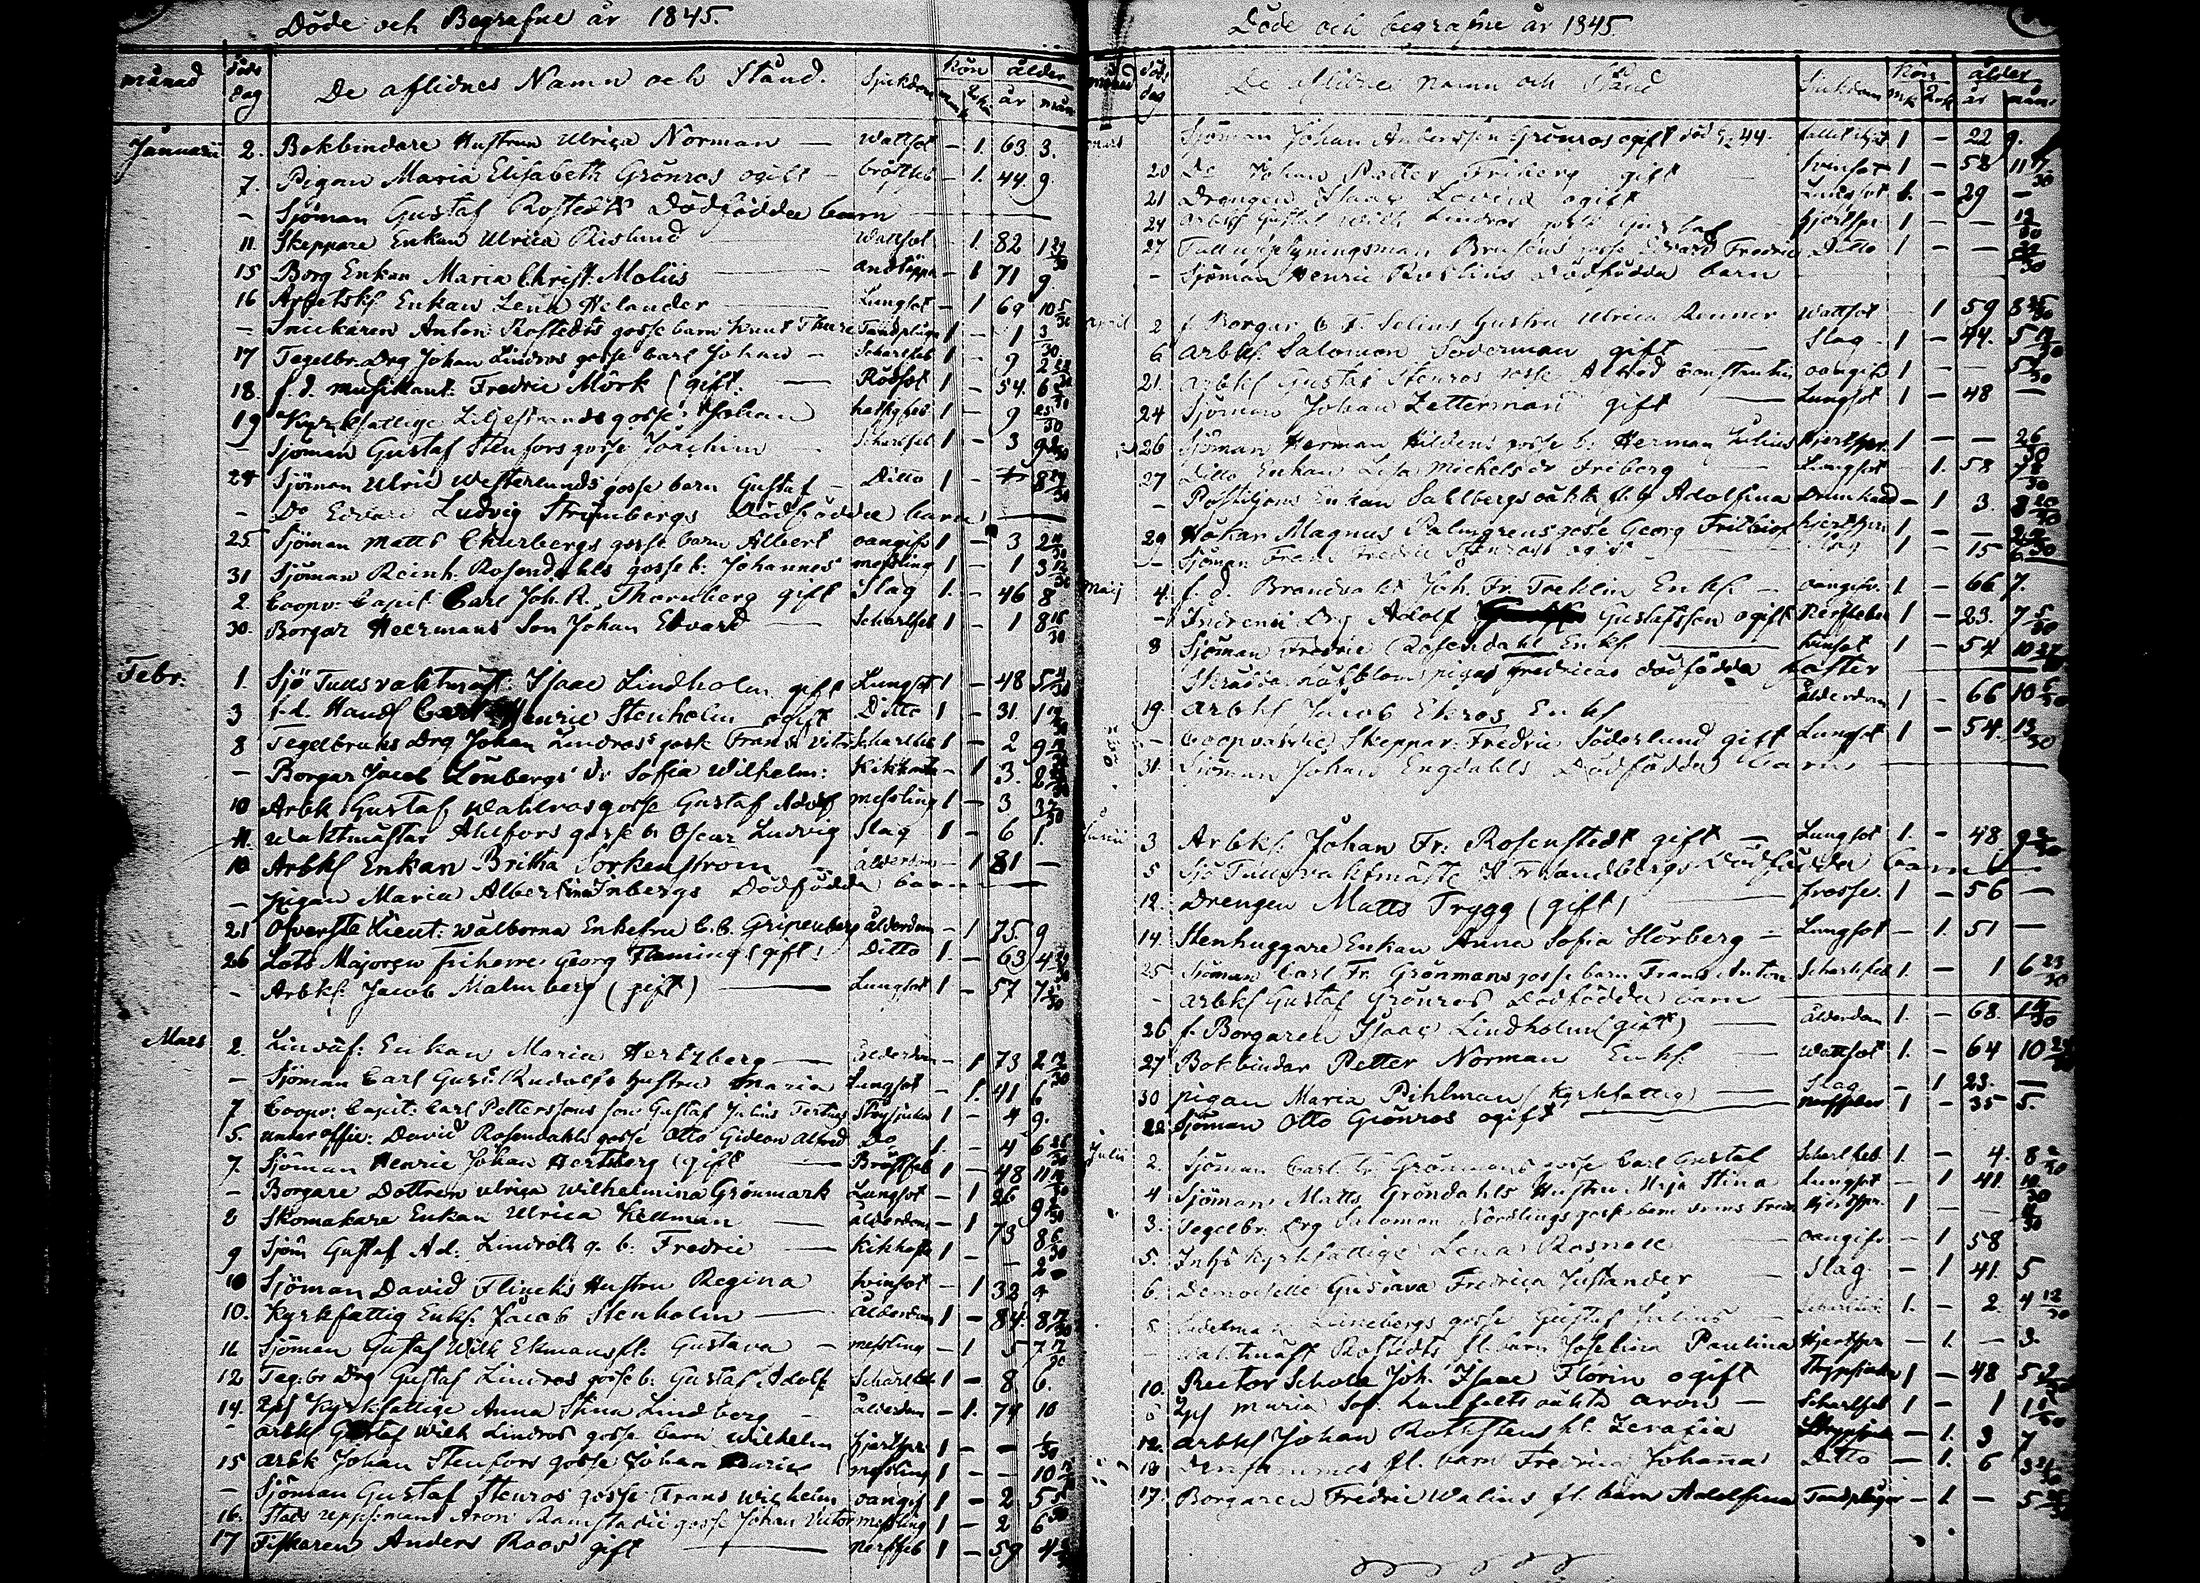 Döde och Begrafne år 1845.
månad döds dag De aflidnes Namn och Stånd. Sjukdom Kön mk qvk ålder år mån
Januarii 2. Bokbindare Hustrun Ulrica Norman — Wattsot - 1. 63 3.
7. Pigan Maria Elisabeth Grönros ogift - bröstfeb - 1. 44 9.
- Sjöman Gustaf Rostedts Dödfödde barn
11. Skeppare Enkan Ulrica Rislund — Wattsot - 1. 82 1
15 Borg Enkan Maria Christ. Molüs — andtäppa - 1 71 9.
16 Arbetskf. Enkan Lena Helander — Lungsot - 1 69 10 5/30
- Snickaren Anton Rostedts gosse barn Knut Thure Tandsprickn 1 - 1 3/30
17 Tegelbr. Drg Johan Lindros gosse Carl Johan - Scharlfeb 1 - 9 2
18. f.d. musikant. Fredric Mörk (gift. — Rödsot 1 - 54. 6
19 Kyrkfattige Liljestrands gosse Johan hetsigfeb 1 - 9 25/30
- Sjöman Gustaf Stenfors gosse Joachim - Scharlfeb 1 - 3 9
24 Sjöman Ulric Westerlunds gosse barn Gustaf - Ditto 1 - 8
- Do Edvard Ludvig Strömbergs Dödfödde barn
25. Sjöman Matts Churbergs gosse barn Albert oangifv 1 - 3 2
31 Sjöman Reinh. Rosendahls gosse b: Johannes messling 1 - 1 3 12/30
2. Coopv: Capit. Carl Joh. R. Thornberg gift Slag 1. - 46 8
30. Borgar Heermans Son Johan Edvard — Scharlfeb 1 - 1 8 16/30
Febr. 1. Sjö Tullsvaktmäst. Isaac Lindholm gift Lungsot 1 - 48 5
3 f.d. Handl Carl Henric Stenholm ogift Ditto 1 - 31. 1
8 Tegelbruks Drg Johan Lindros's gosse Frans Victor Scharlfeb 1 - 2 9
- Borgar Jacob Lönbergs dr Sofia Wilhelm: Kikhosta - 1 3. 2
10 Arbk Gustaf Wahlros gosse Gustaf Adolf messling 1 - 3 3
11. Waktmästar Ahlfors gosse b Oscar Ludvig Slag 1 - 6 1.
10 Arbkf Enkan Britha Sorkenstrom ålderdom - 1 81 -
- Pigan Maria Albertina Inbergs Dödfödde barn
21 Öfverste Lieut: wälborna Enkefru C. C. Gripenberg ålderdom - 1 75 9
26 Lots Majoren friherre Georg Fleming (gift) Ditto 1. - 63 4
- Arbkf. Jacob Malmberg (gift) — Lungsot 1 - 57 7
Mars 2. Lindäf: Enkan Maria Hertzberg — ålderdom - 1 73 2
- Sjöman Carl Gust. Rudolfs hustru Maria Lungsot - 1. 41 6
7 Coopv: Capit: Carl Petterssons son Gustaf Julius Tertius Strypsjuka 1 - 4 9.
5. underoffic: David Rosendahls gosse Otto Gideon Alfred Do 1. - 4 6
7. Sjöman Henric Johan Hertsberg (gift — Bröstfeb 1 - 48 11
- Borgare Dottren Ulrica Wilhelmina Grönmark Lungsot - 1 26 9
8 Skomakare Enkan Ulrica Kellman — ålderdom - 1 73 8
9 Sjöm Gustaf Ad: Lindrolls g. b: Fredric — Kikhosta 1 - - 2
10 Sjöman David Flincks Hustru Regina hvinsot - 1 32 9
10. Kyrkfattig Enkf. Jacob Stenholm — ålderdom 1 - 84. 8
11 Sjöman Gustaf Wilh Ekmans fl: Gustava - messling - 1 5 7
12 Teg:br Drg Gustaf Lindros gosse b: Gustaf Adolf Scharlfeb 1 - 8 6.
14. Kyrkfattige Anna Stina Lindberg - ålderdom - 1. 74 10
- arbkf Gustaf Wilh Lindros gosse barn Wilhelm hjertspr 1 - - 1/30
15 arbk Johan Stenfors gosse Johan messling 1 - - 10
- Sjöman Gustaf Stenros gosse Frans Wilhelm oangif 1 - 2 5
16. Stads uppsyman Aron Ramstadii gosse Johan Victor messling 1 - 2 6
17 Fiskaren Anders Roos gift — nerffeb 1 - 59 4
Döde och begrafne år 1845.
månad döds dag De aflidnes namn och Stånd Sjukdom Kön mk qvk ålder år mån:
mars Sjöman Johan Andersson Grönros ogift död 44. 1 - 22 9.
20 Do Johan Petter Friberg gift — hvinsot 1 - 58 11 17/30
21 Drengen Isaac Lovén ogift Lungsot 1. - 29 -
24 arbkf Gustaf Wilh Lindros gosse Gustaf - hjertspr 1 - - 12/30
27 Brusiins gosse Edvard Fredric Ditto 1 - -
- Sjöman Henric Roslins Dödfödda barn
April 2 f. Borgar C. F. Selins hustru Ulrica Renner Wattsot - 1 59 8
6 arbkf. Salomon Söderman gift — Slag - 1 - 44. 5
21. arbkf Gustaf Stenros gosse Alfred Constantin oangift 1 - - 5/30
24 Sjöman Johan Zetterman gift — Lungsot 1 - 48 -
26 Sjöman Herman Hildens gosse b. Herman Julius hjertspr. 1 - - 26/30
27 Ditto Enkan Lisa Michelsdr Friberg - Lungsot - 1. 58 7
- Postiljons Enkan Sahlbergs oäkt fl. b Adolfina Drunknad - 1 3. 8 20/30
29 Håkar Magnus Palmgrens gosse Georg Frithiof hjertspr 1 - - 2
- Sjöman Frans Fredric Stenros ogift Slag 1 - 15 6
Maij 4. f.d. Brandvakt Joh. Fr. Trehlin Enkf. - oangifv. 1 - 66 7.
- Drg Adolf Gustafsson ogift Nerffeber 1 - 23. 7 5/30
8 Sjöman Fredric Rosendahl Enkf — hvinsot 1 - 54 10 27
pigas Fredricas dödfödda dotter
19. arbkf Jacob Ekros Enkf ålderdom 1 - 66 10
- Coopvardie Skeppar Fredric Söderlund gift Lungsot 1 - 54. 13/30
31. Sjöman Johan Engdahls Dödfödda barn
Junii 3 Arbkf. Johan Fr: Rosenstedt gift — Lungsot 1. - 48 9
5 Sjö Tullsvaktmäste Sandbergs Dödfödda barn
12. Drengen Matts Trygg (gift) frosse. 1 - 56 -
14. Stenhuggare Enkan Anna Sofia Hörberg - Lungsot - 1. 51 -
25 Sjöman Carl Fr. Grönmans gosse barn Frans Anton Scharlfeb 1. - 1 6 23/30
- arbkf Gustaf Grönros Dödfödda barn
26 f. Borgaren Isaac Lindholm (gift) — ålderdom 1. - 68. 1
27 Bokbindar Petter Norman Enkf. — Wattsot 1. - 64 10
30 pigan Maria Pihlman (Kyrkfattig) — Slag - 1 23. -
22 Sjöman Otto Grönros ogift — nerffeber 1 - 35 5.
Julii 2. Sjöman Carl Fr. Grönmans gosse Carl Gustaf Scharlfeb. 1. - 4. 8 2/30
4 Sjöman Matts Gröndahls Hustru Maja Stina Lungsot - 1 41
3. Tegelbr. Drg Salomon Nordlings gosse barn Frans hjertspr. 1 - -
5. Inhs Kyrkfattige Lena Rosnell — oangifv - 1 58
6. Demoiselle Gustava Fredrica Justander — Slag - 1 41. 5
8. Lunebergs gosse Gustaf Julius - Scharlfeb. 1. - 2. 4 12/30
- Waktmäst Rostedts fl. barn Josefina Paulina Hjertspr - 1. - 3.
10. Rector Schola Joh. Isaac Florin ogift Strypsjuka 1 - 48 5
8 Maria Sof. oäkta Aron - Scharlfeb 1 - 1 1
12. arbkf Johan Rothstens fl. Serafia Strypsjuka - 1. 3 7
18 Densammes fl. barn Fredrica Johanna Ditto - 1. 6 3
17. Borgaren Fredric Walins fl. barn Adolfina Tandsprickn - 1. - 5